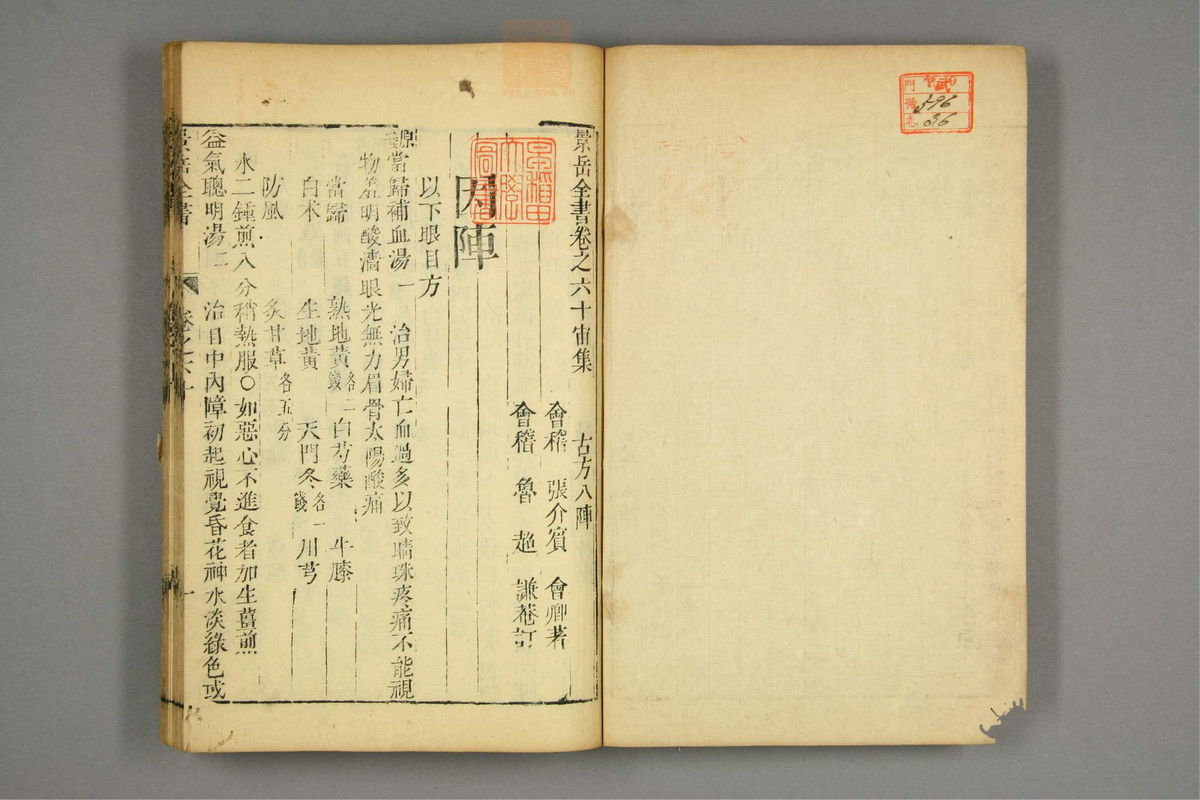 景岳全書卷之六十宙集 古方八陣
會稽 張介賓 會卿著
會稽 魯 超 謙菴訂
因陣
以下眼目方
當歸補血湯一 治男婦亡血過多以致睛珠疼痛不能視
物羞明酸濇眼光無力眉骨太陽酸痛
當歸 熟地黃各二錢 白芍藥 牛膝
白术 生地黃 天門冬各一錢 川芎
防風 炙甘草各五分
水二鍾煎八分稍熱服○如惡心不進食者加生薑煎
益氣聰明湯二 治目中內障初起視覺昏花神水淡綠色或
景岳全書 卷之六十 一
門
號 596
卷 36